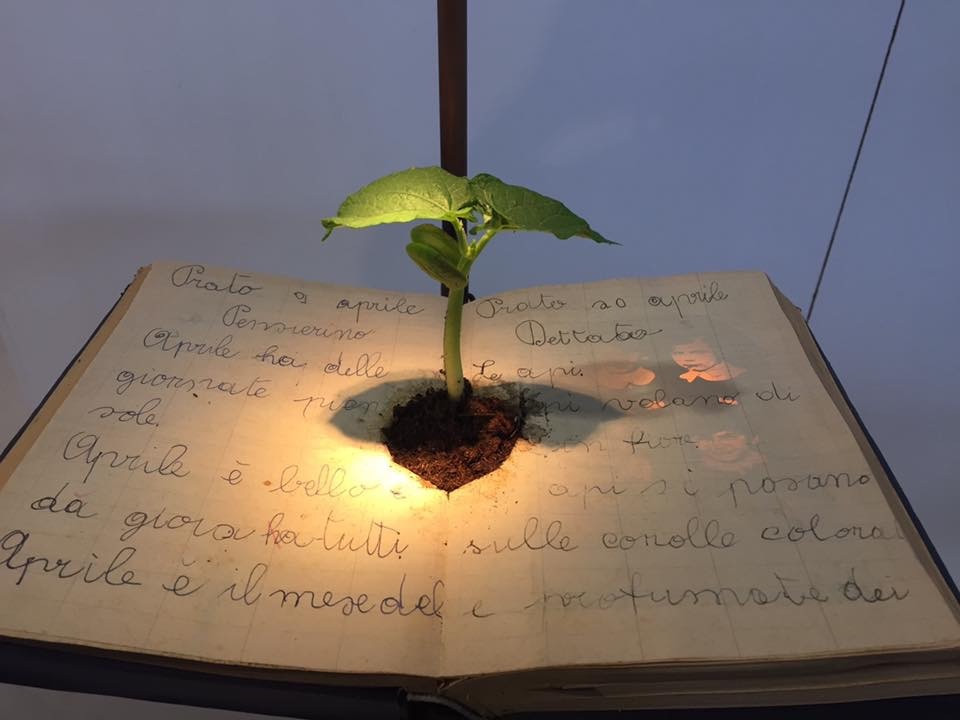 Prato 9 aprile
Pensierino
Aprile ha delle
giornate pien
sole.
Aprile è bello
dà gioia ha tutti
Aprile è il mese del
Prato 20 aprile
Dettato
Le api.
api volano di
in fiore.
api si posano
sulle corolle colora
e profumate dei